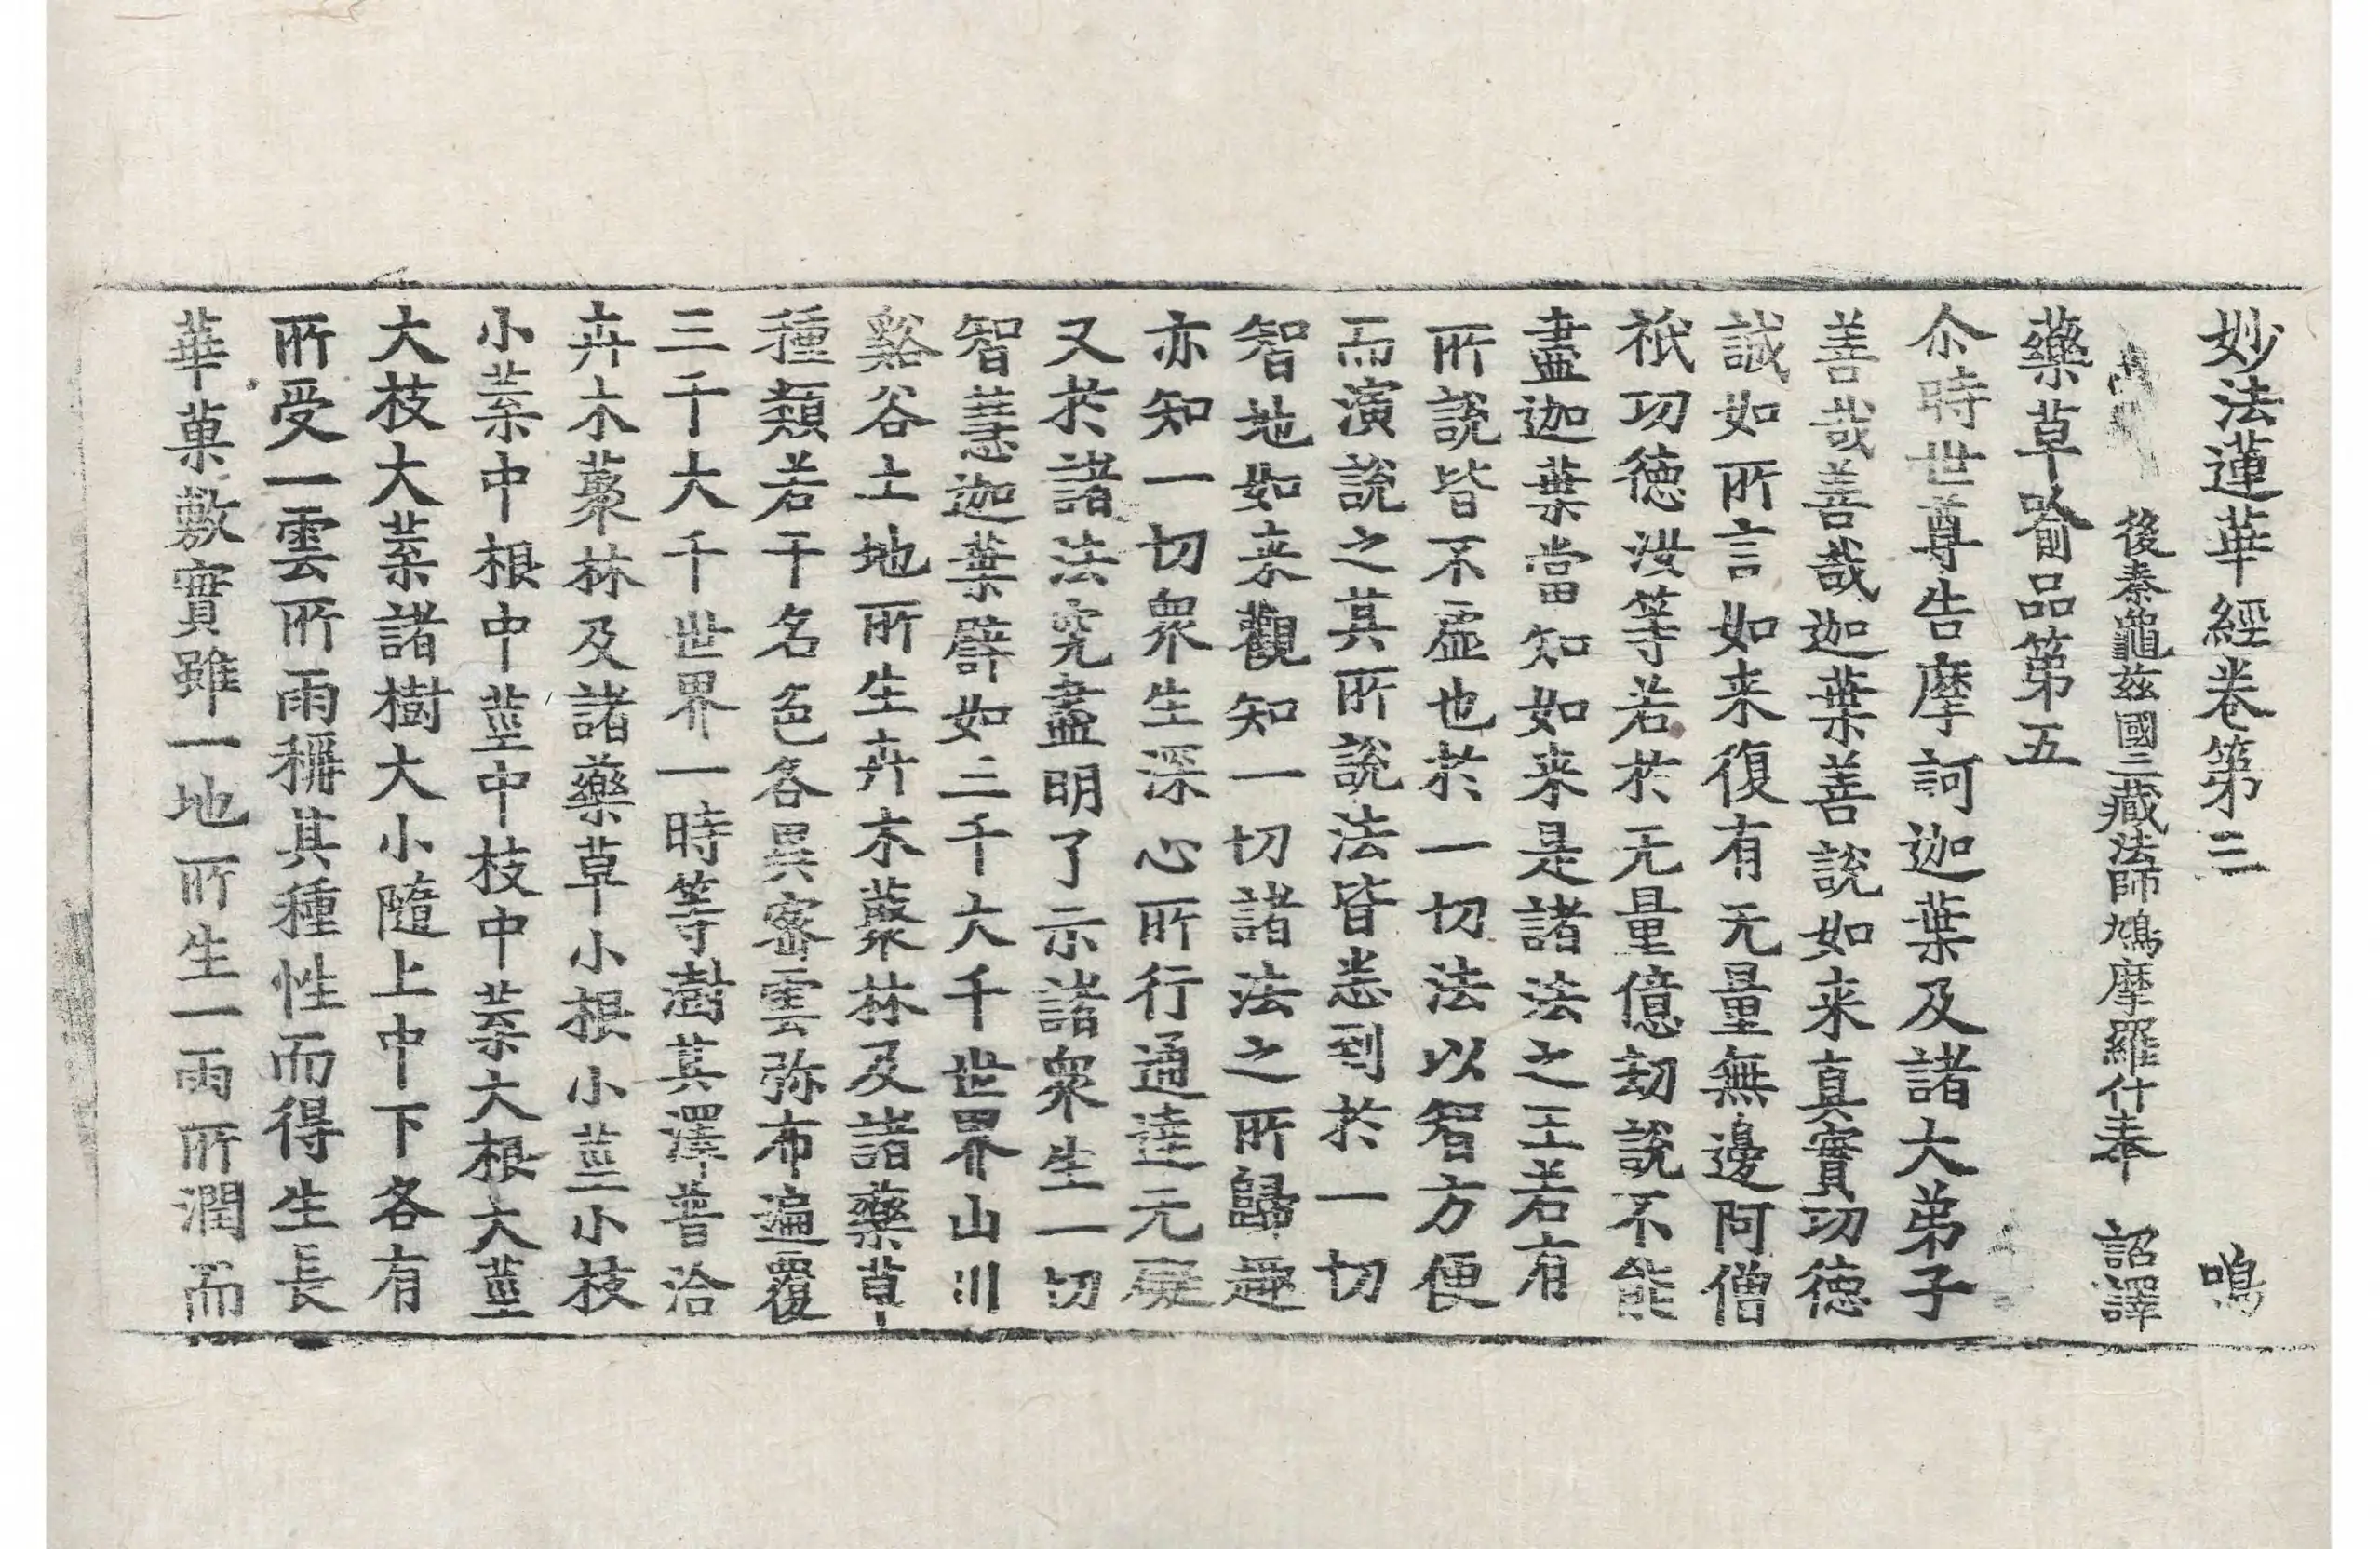 妙法蓮華經卷第三 鳴
後秦龜茲國三藏法師鳩摩羅什奉 詔譯
藥草喻品第五
尒時世尊告摩訶迦葉及諸大弟子
善哉善哉迦葉善說如来真實功德
誠如所言如来復有无量無邊阿僧
祇功德汝等若扵无量億劫說不能
盡迦葉當知如来是諸法之王若有
所說皆不虛也扵一切法以智方便
而演說之其所說法皆悉到扵一切
智地如来觀知一切諸法之所歸趣
亦知一切衆生深心所行通達无礙
又扵諸法究盡明了示諸衆生一切
智慧迦葉譬如三千大千世界山川
谿谷土地所生卉木藂林及諸藥草
種類若干名色各異密雲弥布遍覆
三千大千世界一時等澍其澤普洽
卉木藂林及諸藥草小根小莖小枝
小葉中根中莖中枝中葉大根大莖
大枝大葉諸樹大小隨上中下各有
所受一雲所雨稱其種性而得生長
華菓敷實雖一地所生一雨所潤而